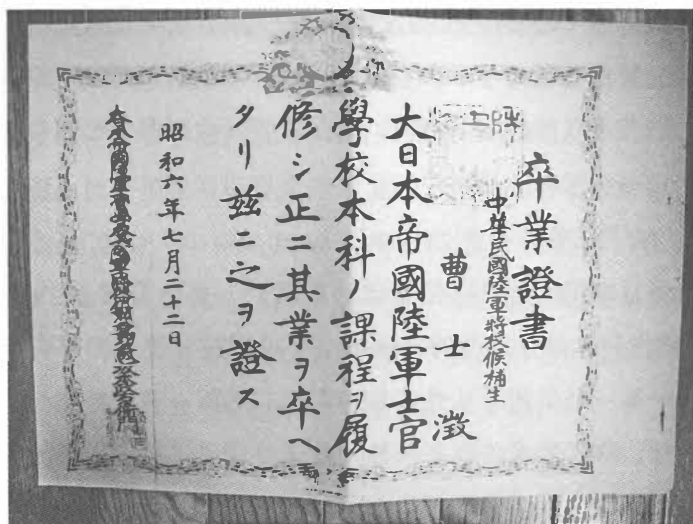 卒業證書
中華民國陸軍將校候補生
曹士澂
大日本帝國陸軍士官
學校本科ノ課程ヲ履
修シ正ニ其業ヲ卒ヘ
タリ茲ニ之ヲ證ス
昭和六年七月二十二日